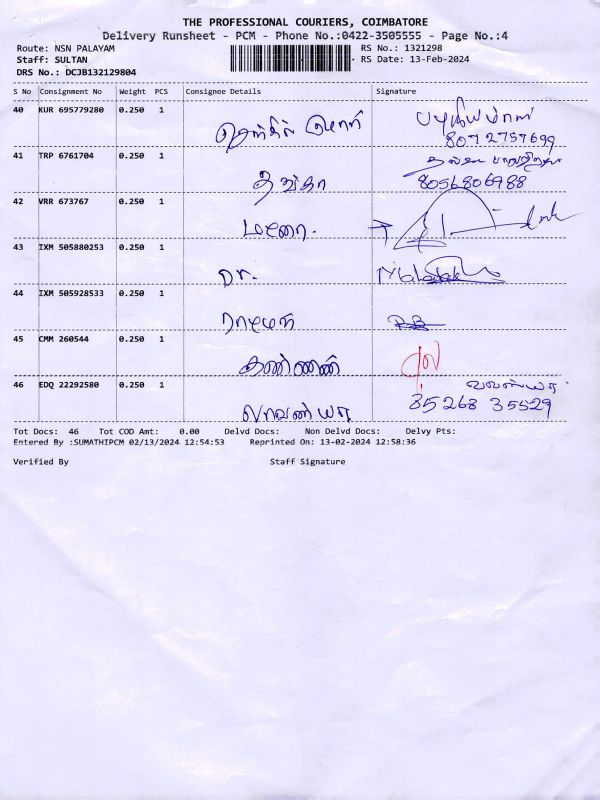 THE PROFESSIONAL COURIERS, COIMBATORE
Delivery Runsheet - PCM - Phone No.:0422-3505555 - Page No.:4
Route: NSN PALAYAM
RS No.: 1321298
Staff: SULTAN
RS Date: 13-Feb-2024
DRS No.: DCJB132129804
S No Consignment No Weight PCS Consignee Details Signature
40 KUR 695779280 0.250 1
8072757699
41 TRP 6761704 0.250 1
8056806988
42 VRR 673767 0.250 1
43 IXM 505880253 0.250 1 Dr.
44 IXM 505928533 0.250 1
45 CMM 260544 0.250 1 கண்ணன்
46 EDQ 22292580 0.250 1 லாவண்யா
85268 35529
Tot Docs: 46 Tot COD Amt: 0.00 Delvd Docs: Non Delvd Docs: Delvy Pts:
Entered By :SUMATHIPCM 02/13/2024 12:54:53 Reprinted On: 13-02-2024 12:58:36
Verified By Staff Signature